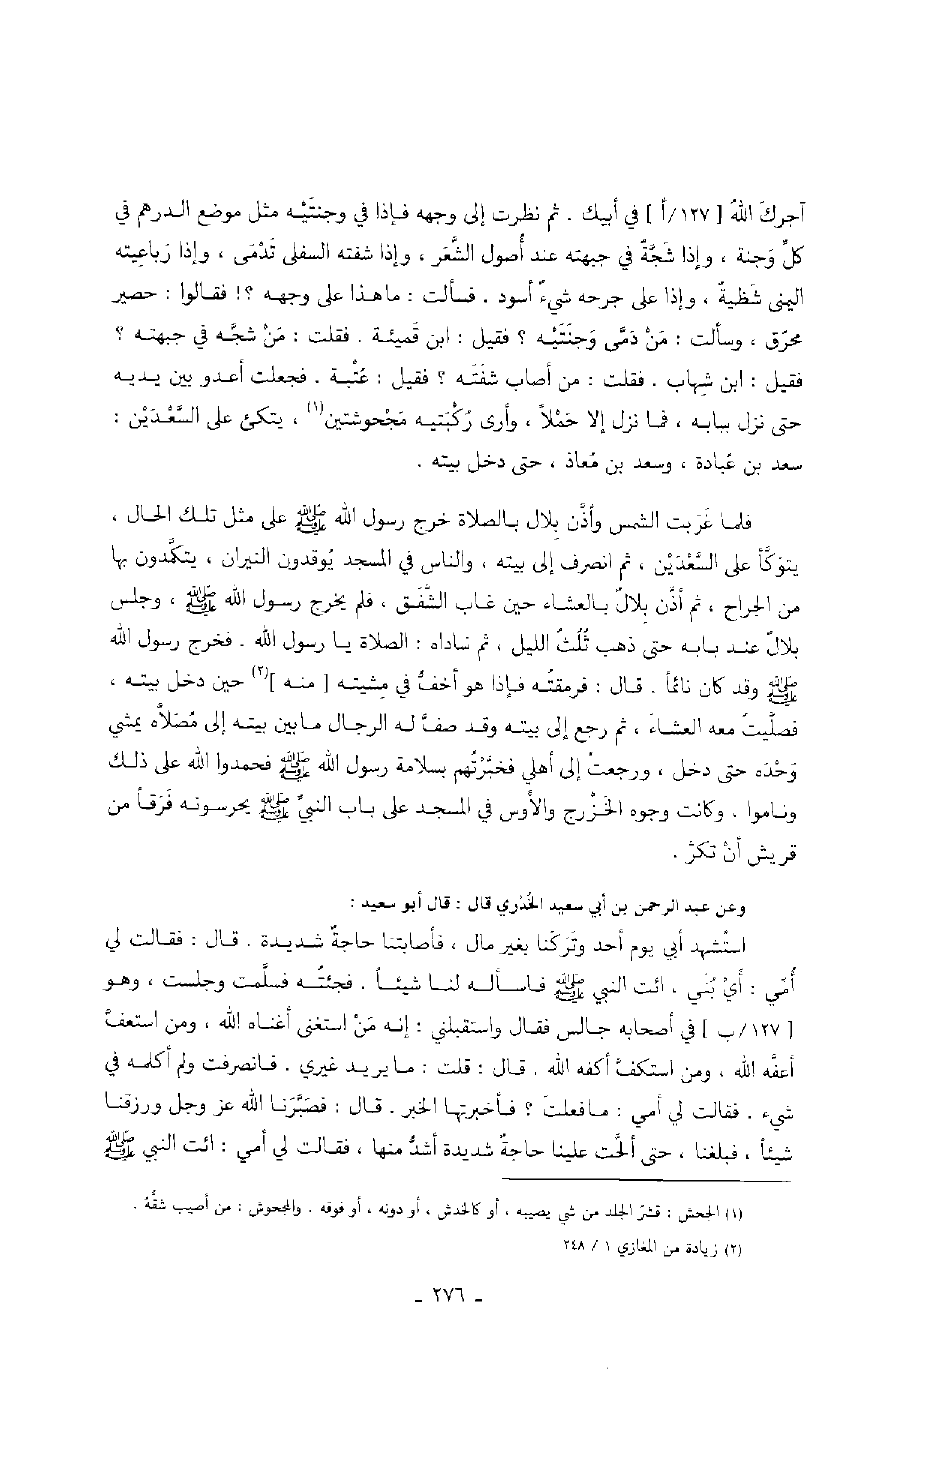 آجركَ اللهُ [ ١٢٧/أ ] في أبيك . ثم نظرت إلى وجهه فإذا في وجنتَيْه مثل موضع الدرهم في
كلِّ وَجنة ، وإذا شَجَّةٌ في جبهته عند أُصول الشَّعَر ، وإذا شفته السفلى تَدْمَى ، وإذا رَباعِيته
اليمنى شَظيةٌ ، وإذا على جرحه شيءٌ أسود . فسألت : ماهذا على وجهه ؟! فقالوا : حصير
محرّق ، وسألت : مَنْ دَمَّى وَجنَتَيْه ؟ فقيل : ابن قَميئة . فقلت : مَنْ شجَّه في جبهته ؟
فقيل : ابن شهاب . فقلت : من أصاب شفَتَه ؟ فقيل : عُتْبة . فجعلت أعدو بين يديه
حتى نزل ببابه ، فما نزل إلا حَمْلاً ، وأرى رُكْبَتيه مَجْحوشتين(١) ، يتكئ على السَّعْدَيْن :
سعد بن عُبادة ، وسعد بن مُعاذ ، حتى دخل بيته .
فلما غَرَبت الشمس وأذَّن بلال بالصلاة خرج رسول الله ﷺ على مثل تلك الحال ،
يتوكَّأ على السَّعْدَيْن ، ثم انصرف إلى بيته ، والناس في المسجد يُوقدون النيران ، يتكمَّدون بها
من الجراح ، ثم أذَّن بلالٌ بالعشاء حين غاب الشَّفَق ، فلم يخرج رسول الله ﷺ ، وجلس
بلالٌ عند بابه حتى ذهب ثُلُثُ الليل ، ثم ناداه : الصلاة يا رسول الله . فخرج رسول الله
ﷺ وقد كان نائماً . قال : فرمقتُه فإذا هو أخفُّ في مِشيته [ منه ](٢) حين دخل بيته ،
فصلَّيتُ معه العشاءَ ، ثم رجع إلى بيته وقد صفَّ له الرجال مابين بيته إلى مُصَلاَّه يمشي
وَحْدَه حتى دخل ، ورجعتُ إلى أهلي فخَبَّرْتُهم بسلامة رسول الله ﷺ فحمدوا الله على ذلك
وناموا . وكانت وجوه الخَزْرج والأوس في المسجد على باب النبيِّ ﷺ يحرسونه فَرَقاً من
قريش أنْ تكرَّ .
وعن عبد الرحمن بن أبي سعيد الخُدْري قال : قال أبو سعيد :
استُشهد أبي يوم أحد وتَرَكَنا بغير مال ، فأصابتنا حاجةٌ شديدة . قال : فقالت لي
أُمّي : أيْ بُنَي ، ائت النبي ﷺ فاسأله لنا شيئاً . فجئتُه فسلَّمت وجلست ، وهو
[ ١٢٧/ب ] في أصحابه جالس فقال واستقبلني : إنه مَنْ استغنى أغناه الله ، ومن استعفَّ
أعفَّه الله ، ومن استكفَّ أكفه الله . قال : قلت : مايريد غيري . فانصرفت ولم أكلمه في
شيء . فقالت لي أمي : مافعلتَ ؟ فأخبرتها الخبر . قال : فصَبَّرَنا الله عز وجل ورزقنا
شيئاً ، فبلغنا ، حتى ألحّت علينا حاجةٌ شديدة أشدُّ منها ، فقالت لي أمي : ائت النبي ﷺ
(١) الجحش : قشرَ الجلد من شي يصيبه ، أو كالخدش ، أو دونه ، أو فوقه . والمجحوش : من أصيب شقُّهُ .
(٢) زيادة من المغازي ١ / ٢٤٨
ـ ٢٧٦ ـ